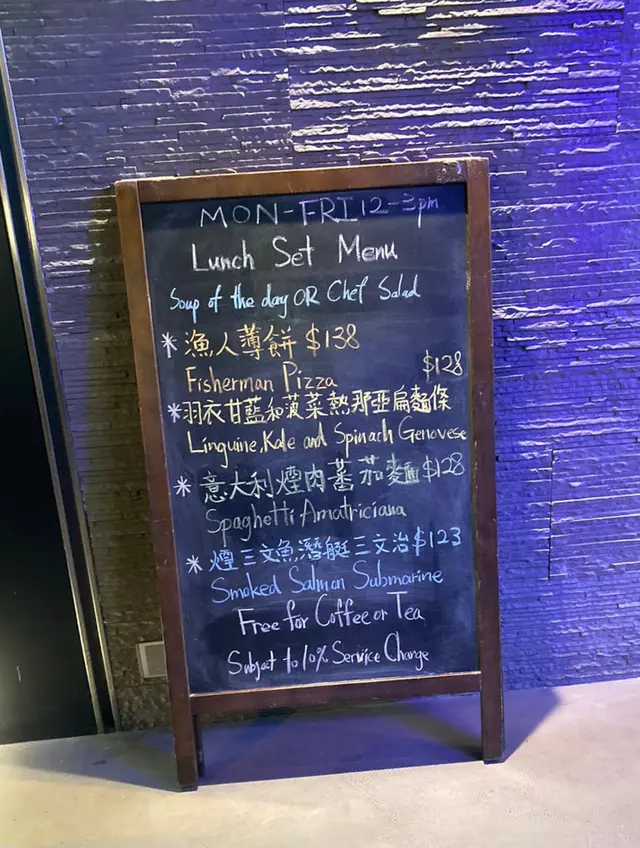 MON-FRI 12-3pm
Lunch Set Menu
Soup of the day OR Chef Salad
* 漁人薄餅 $138
Fisherman Pizza $128
* 羽衣甘藍和菠菜熱那亞扁麵條
Linguine, Kale and Spinach Genovese
* 意大利煙肉蕃茄麵 $128
Spaghetti Amatriciana
* 煙三文魚潛艇三文治 $123
Smoked Salmon Submarine
Free for Coffee or Tea
Subject to 10% Service Charge